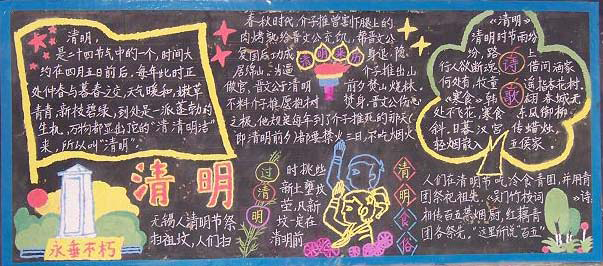 清明,
是二十四节气中的一个,时间大
约在四月五日前后。每年此时正
处仲春与暮春之交,天气暖和,嫩草
青青,新枝碧绿,到处是一派蓬勃的
生机。万物都显出花的"清清明洁"
来,所以叫"清明"。
春秋时代,介子推曾割下腿上的
肉烤熟给晋文公充饥,帮晋文公
复国后功成
身退,隐
居绵山。为逼
介子推出山
做官,晋文公于清明
前夕焚山烧林,
不料介子推愿抱树
焚身。晋文公伤心
之极,他规定每年到了介子推死的那天
(即清明前夕)都要禁火三日,不吃烟火
清明来历
《清明》
清明时节雨纷
纷,路上
行人欲断魂。
借问酒家
何处有,牧童
遥指杏花村。
《寒食》韩翃
春城无
处不飞花,寒食
东风御柳
斜。日暮汉宫
传蜡烛,
轻烟散入
五侯家。
诗歌
清明
永垂不朽
无锡人清明节祭
扫祖坟,人们扫
过清明
时挑些
新土壅坟
茔,凡新
坟一定在
清明前
清明食俗
人们在清明节吃冷食青团,并用青
团祭祀祖先。吴门竹枝词
相传百五禁烟厨,红藕青
团各祭先。"这里所说"百五"